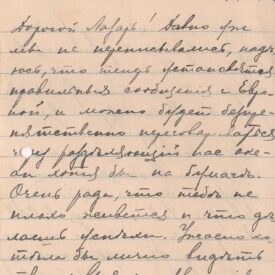 Дорогой Лазарь! Давно уж
мы не переписывались, наде-
юсь, что теперь установятся
правильные сообщения с Евро-
пой, и можно будет беспре-
пятственно переговариваться
разделяющий нас оке-
ан хотя бы на бумаге.
Очень рада, что тебе не
плохо живется и что де-
лаешь успехи. Ужасно хо-
тела бы лично видеть